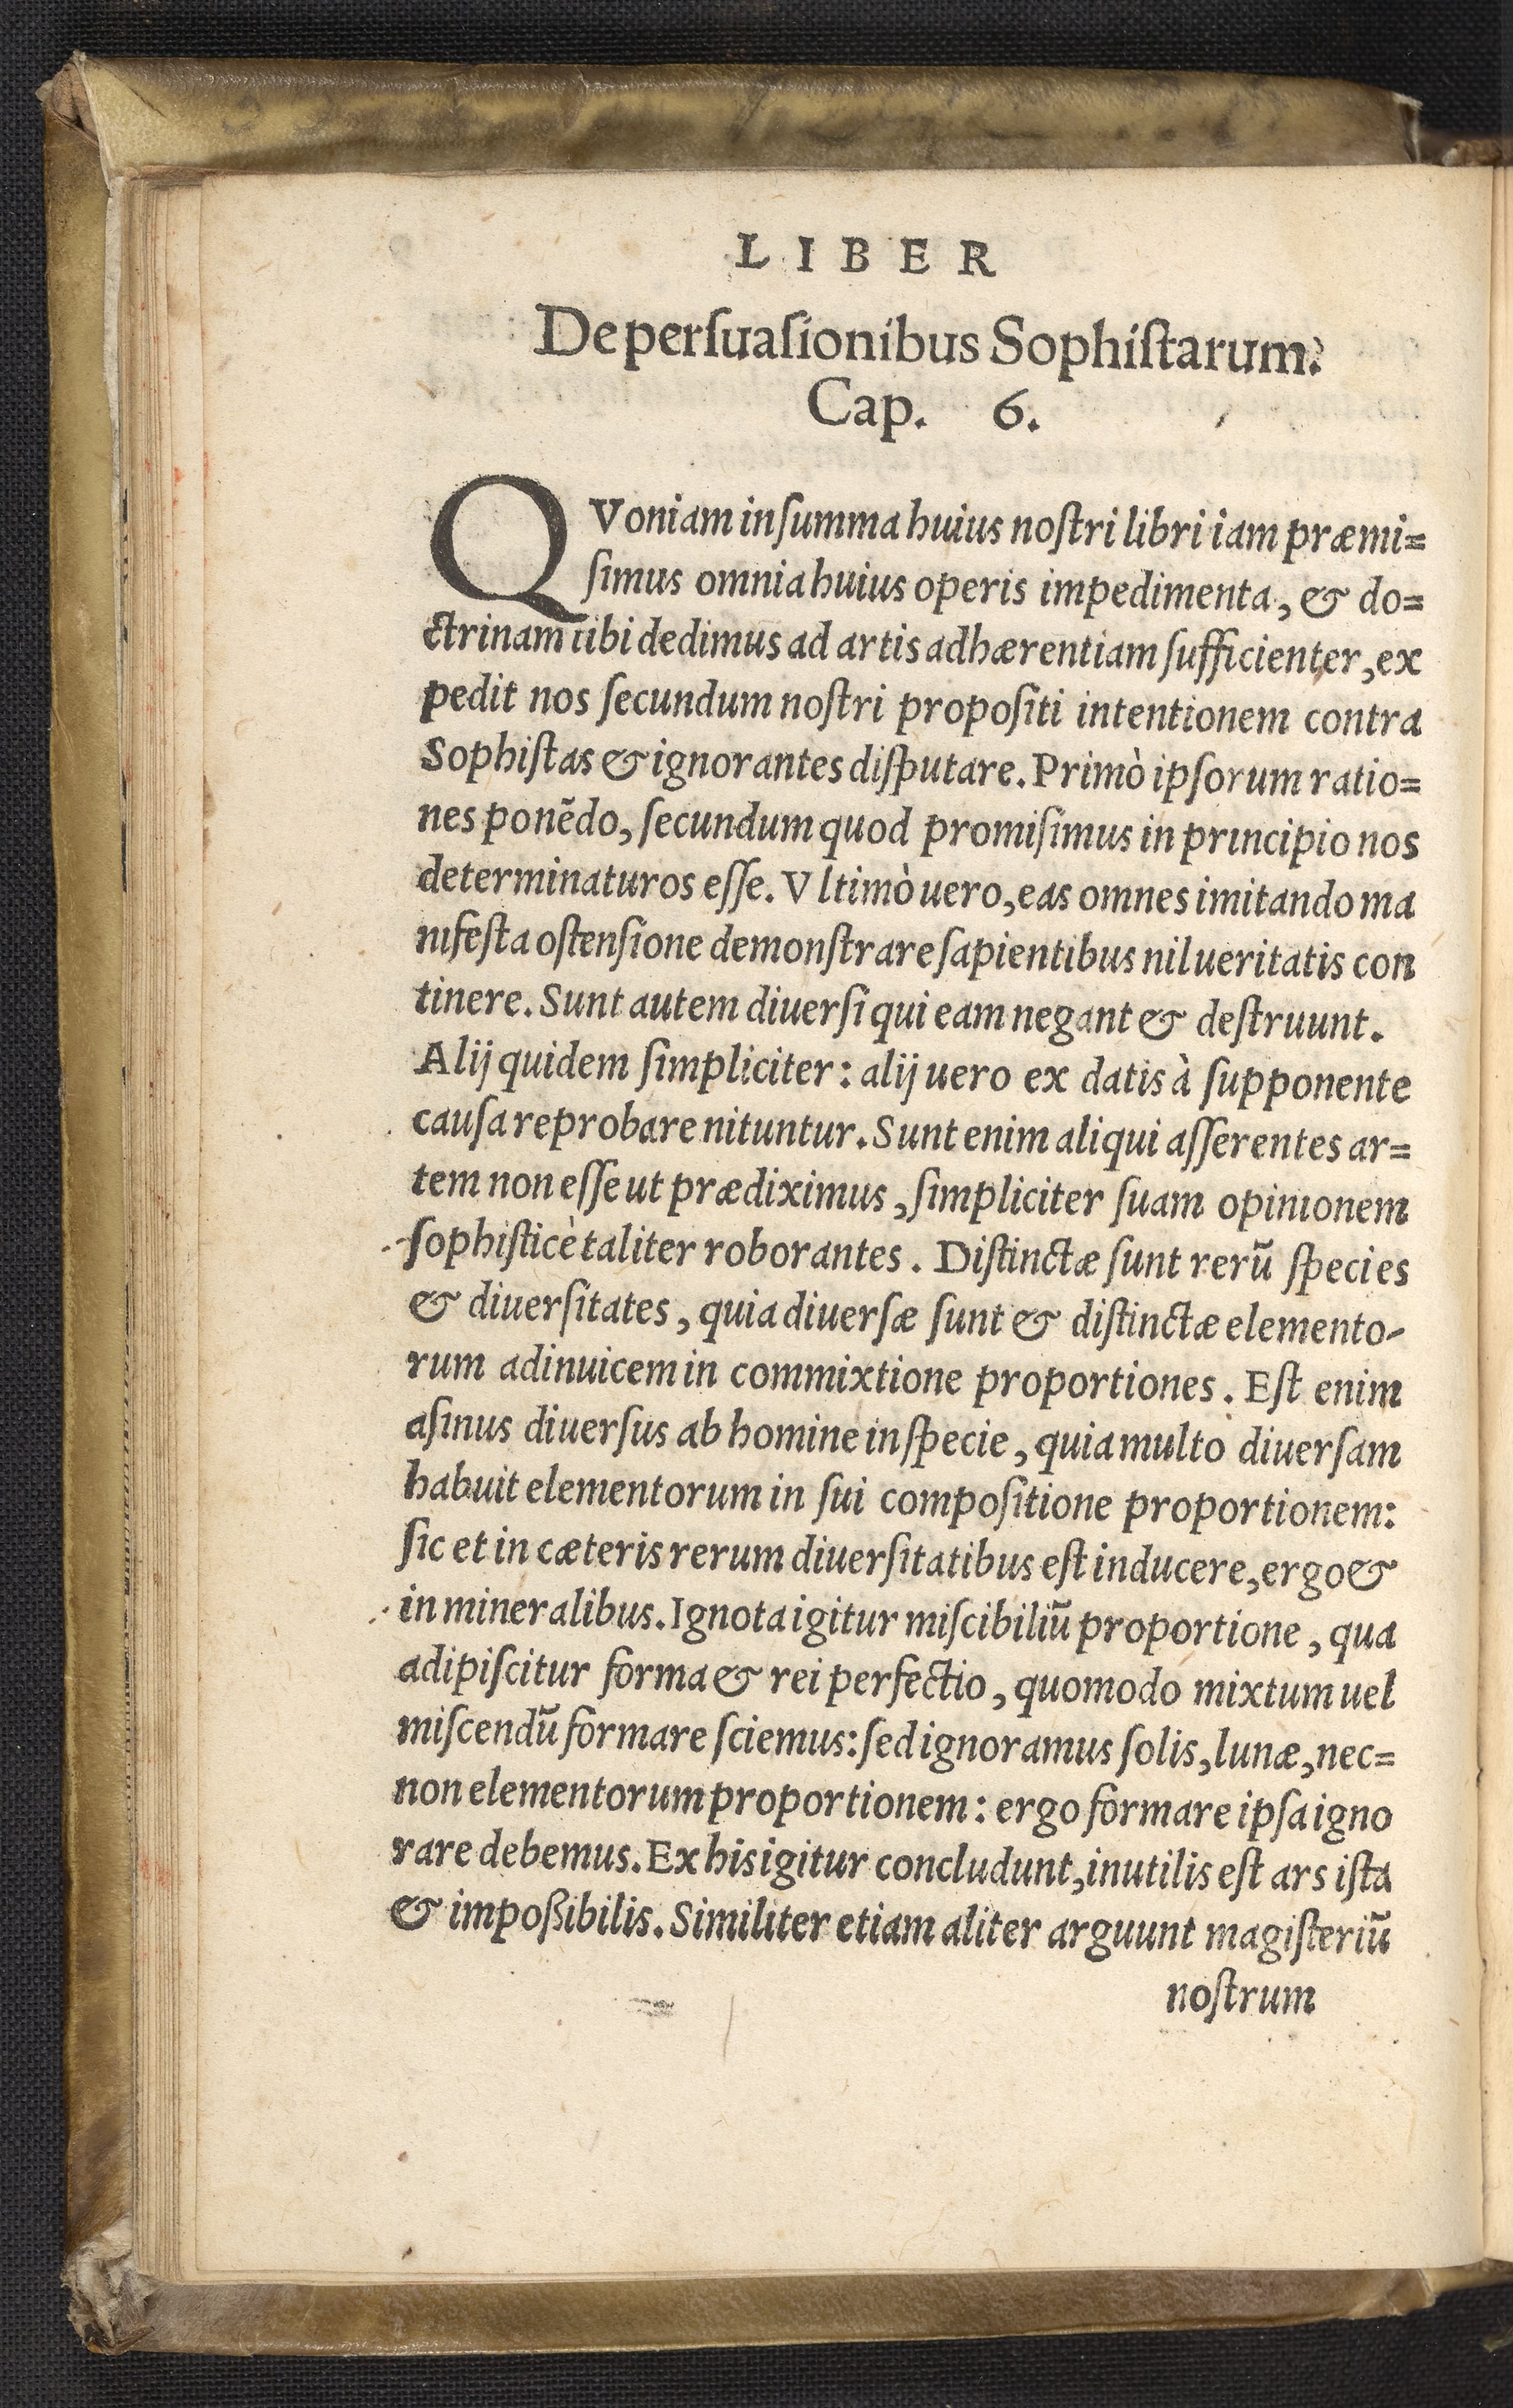 LIBER
De perſuaſionibus Sophiſtarum.
Cap. 6.
QVoniam in ſumma huius noſtri libri iam præmi=
ſimus omnia huius operis impedimenta, & do=
ctrinam tibi dedimus ad artis adhærentiam ſufficienter, ex
pedit nos ſecundum noſtri propoſiti intentionem contra
Sophiſtas & ignorantes diſputare. Primò ipſorum ratio=
nes ponēdo, ſecundum quod promiſimus in principio nos
determinaturos eſſe. Vltimò uero, eas omnes imitando ma
nifeſta oſtenſione demonſtrare ſapientibus nil ueritatis con
tinere. Sunt autem diuerſi qui eam negant & deſtruunt.
Alij quidem ſimpliciter: alij uero ex datis à ſupponente
cauſa reprobare nituntur. Sunt enim aliqui aſſerentes ar=
tem non eſſe ut prædiximus, ſimpliciter ſuam opinionem
ſophiſticè taliter roborantes. Diſtinctæ ſunt rerū ſpecies
& diuerſitates, quia diuerſæ ſunt & diſtinctæ elemento-
rum adinuicem in commixtione proportiones. Eſt enim
aſinus diuerſus ab homine in ſpecie, quia multo diuerſam
habuit elementorum in ſui compoſitione proportionem:
ſic et in cæteris rerum diuerſitatibus eſt inducere, ergo &
in mineralibus. Ignota igitur miſcibiliū proportione, qua
adipiſcitur forma & rei perfectio, quomodo mixtum uel
miſcendū formare ſciemus: ſed ignoramus ſolis, lunæ, nec=
non elementorum proportionem: ergo formare ipſa igno
rare debemus. Ex his igitur concludunt, inutilis eſt ars iſta
& impoßibilis. Similiter etiam aliter arguunt magiſteriū
noſtrum